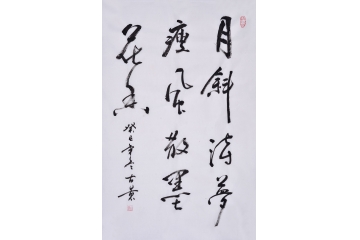 月斜诗梦
瘦风散墨
花香
癸巳年冬古叶